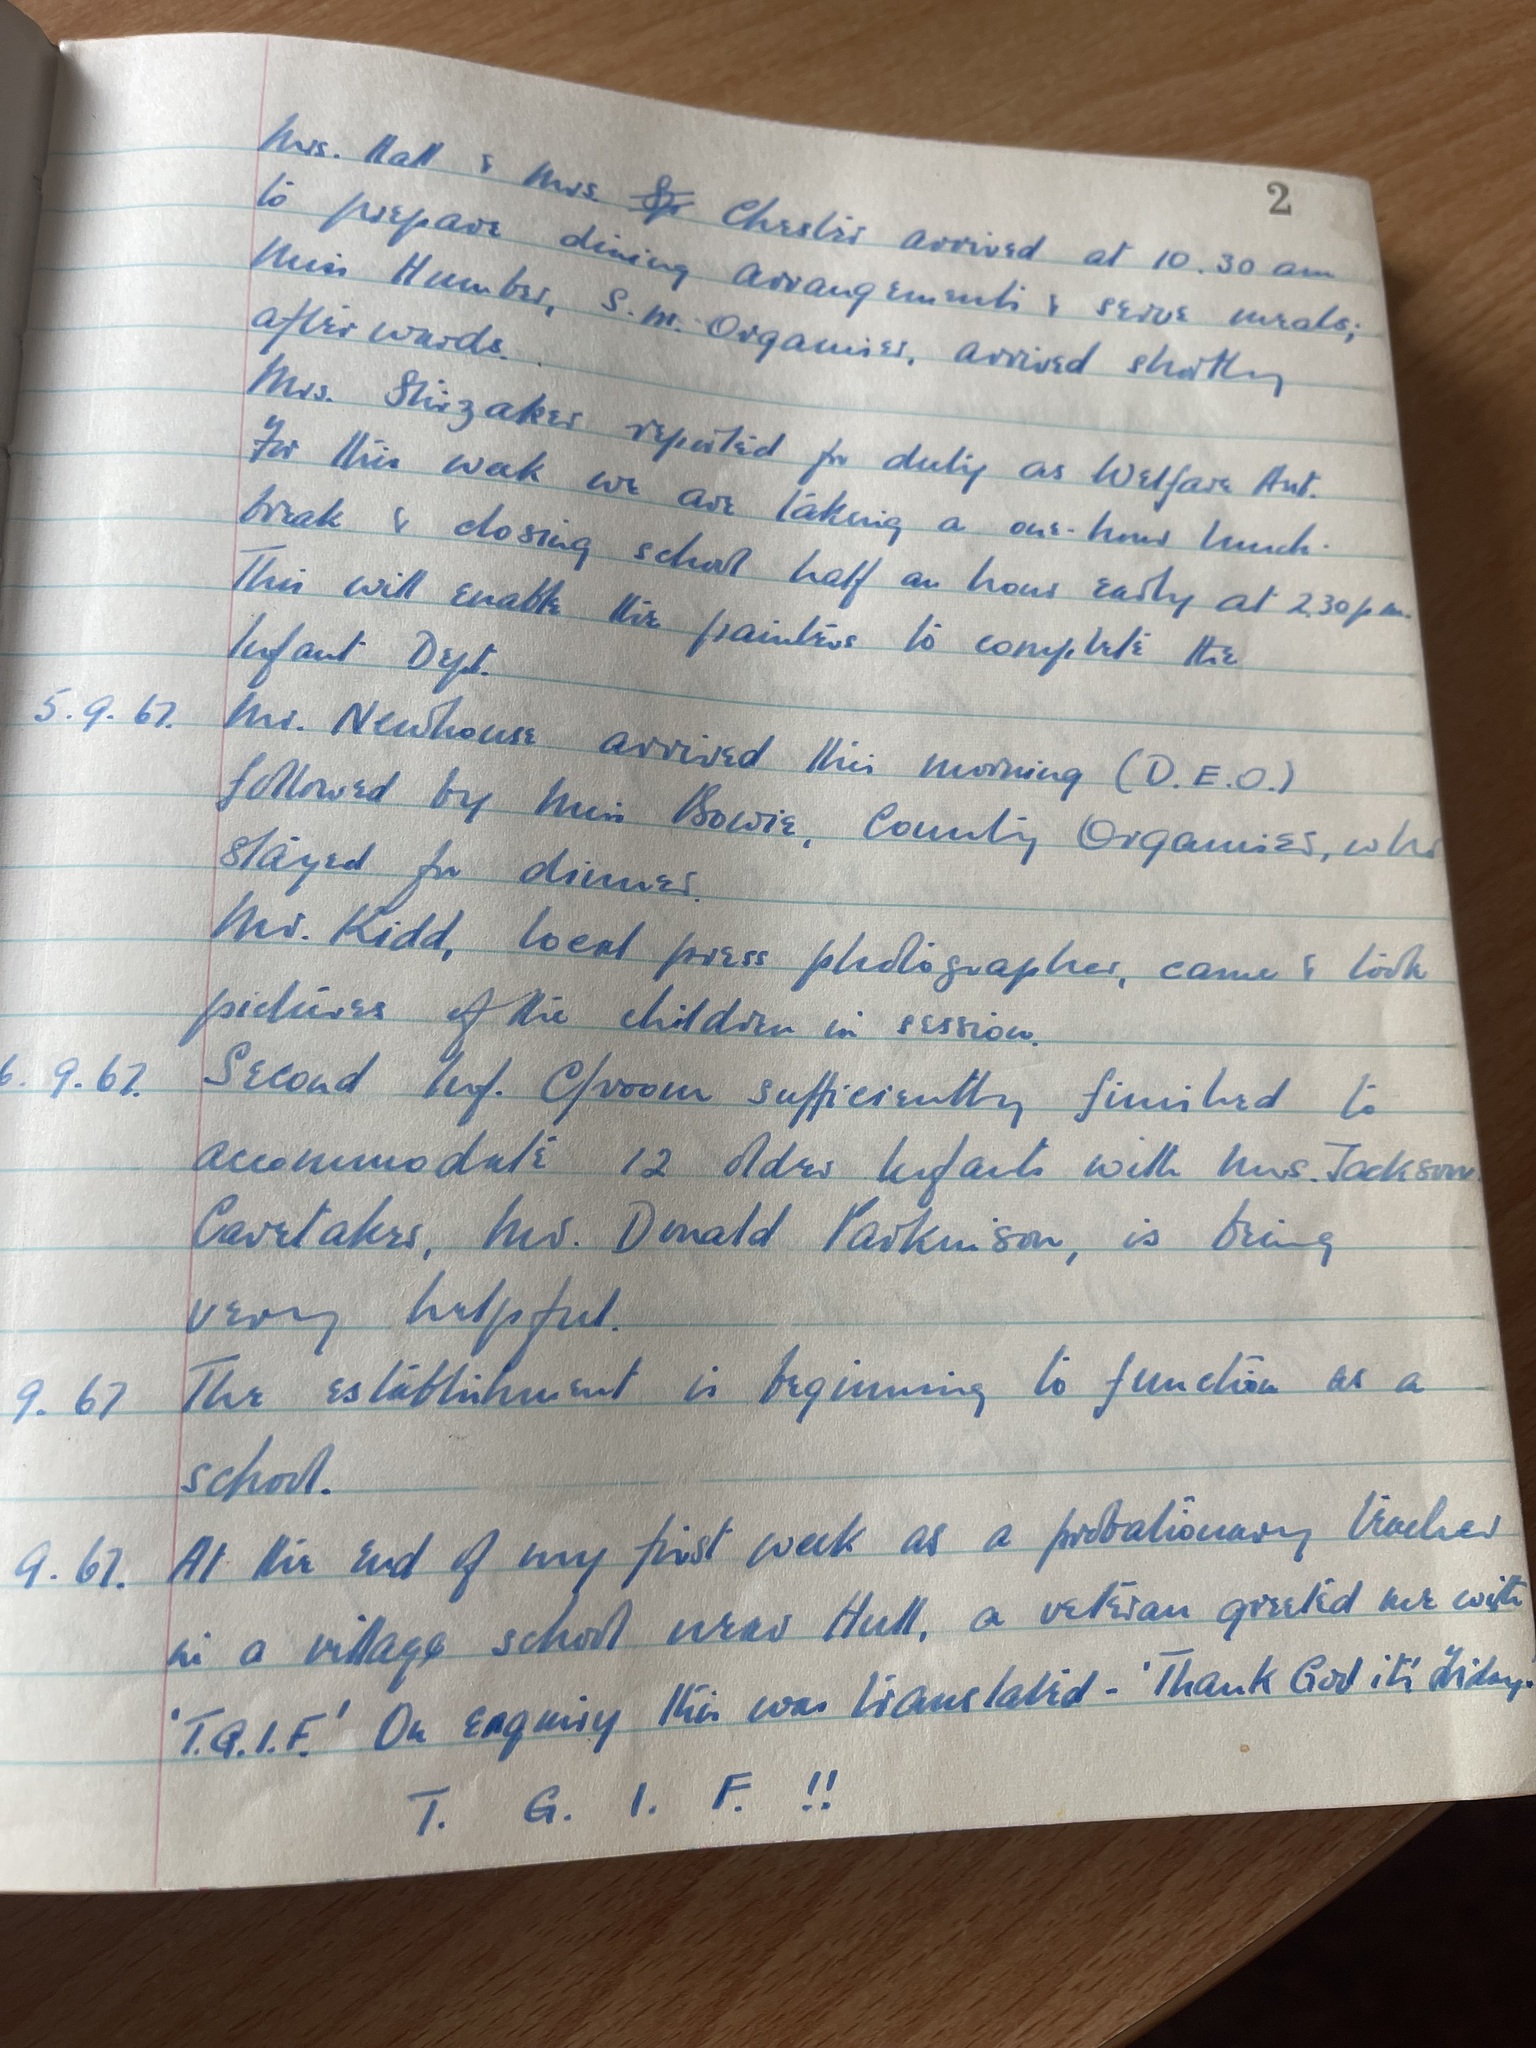 2
Mrs. Hall & Mrs Chester arrived at 10.30 am
to prepare dining arrangements & serve meals;
Miss Humber, S.M. Organiser, arrived shortly
afterwards.
Mrs. Stirzaker reported for duty as Welfare Asst.
For this week we are taking a one-hour lunch-
break & closing school half an hour early at 2.30 p.m.
This will enable the painters to complete the
Infant Dept.
5.9.67. Mr. Newhouse arrived this morning (D.E.O.)
followed by Miss Bowie, County Organiser, who
stayed for dinner.
Mr. Kidd, local press photographer, came & took
pictures of the children in session.
6.9.67. Second Inf. C/room sufficiently finished to
accommodate 12 older Infants with Mrs. Jackson.
Caretaker, Mr. Donald Parkinson, is being
very helpful.
9.67 The establishment is beginning to function as a
school.
9.67. At the end of my first week as a probationary teacher
in a village school near Hull, a veteran greeted me with
'T.G.I.F.' On enquiry this was translated - 'Thank God it's Friday.'
T. G. I. F. !!